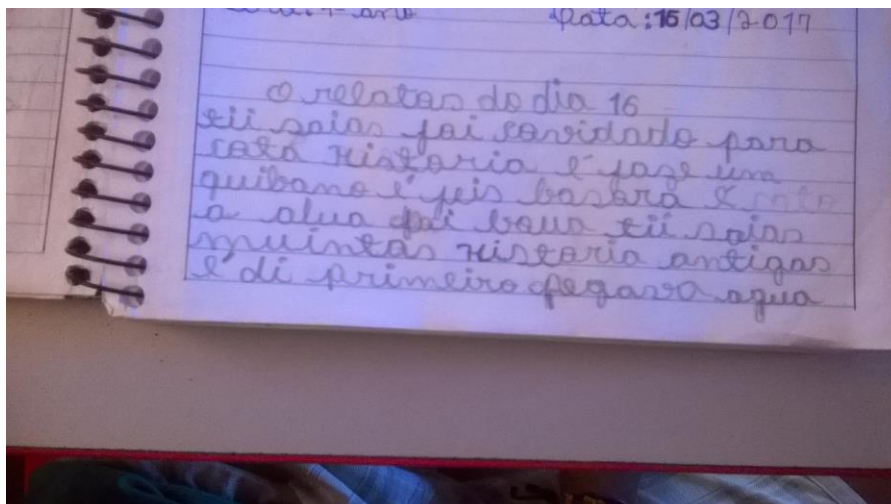 ano Data: 15/03/2017
O relatas do dia 16
tii saias foi convidado para
cota ristoria é faze um
quibano é feis
a alua foi boua tii saias
muintas ristoria antigas
é di primeiro pegava agua